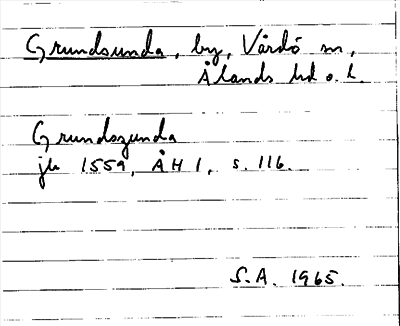 Grundsunda, by, Vårdö sn,
Ålands hd o. l.
Grundszunda
jb 1559, ÅH 1, s. 116.
S.A. 1965.